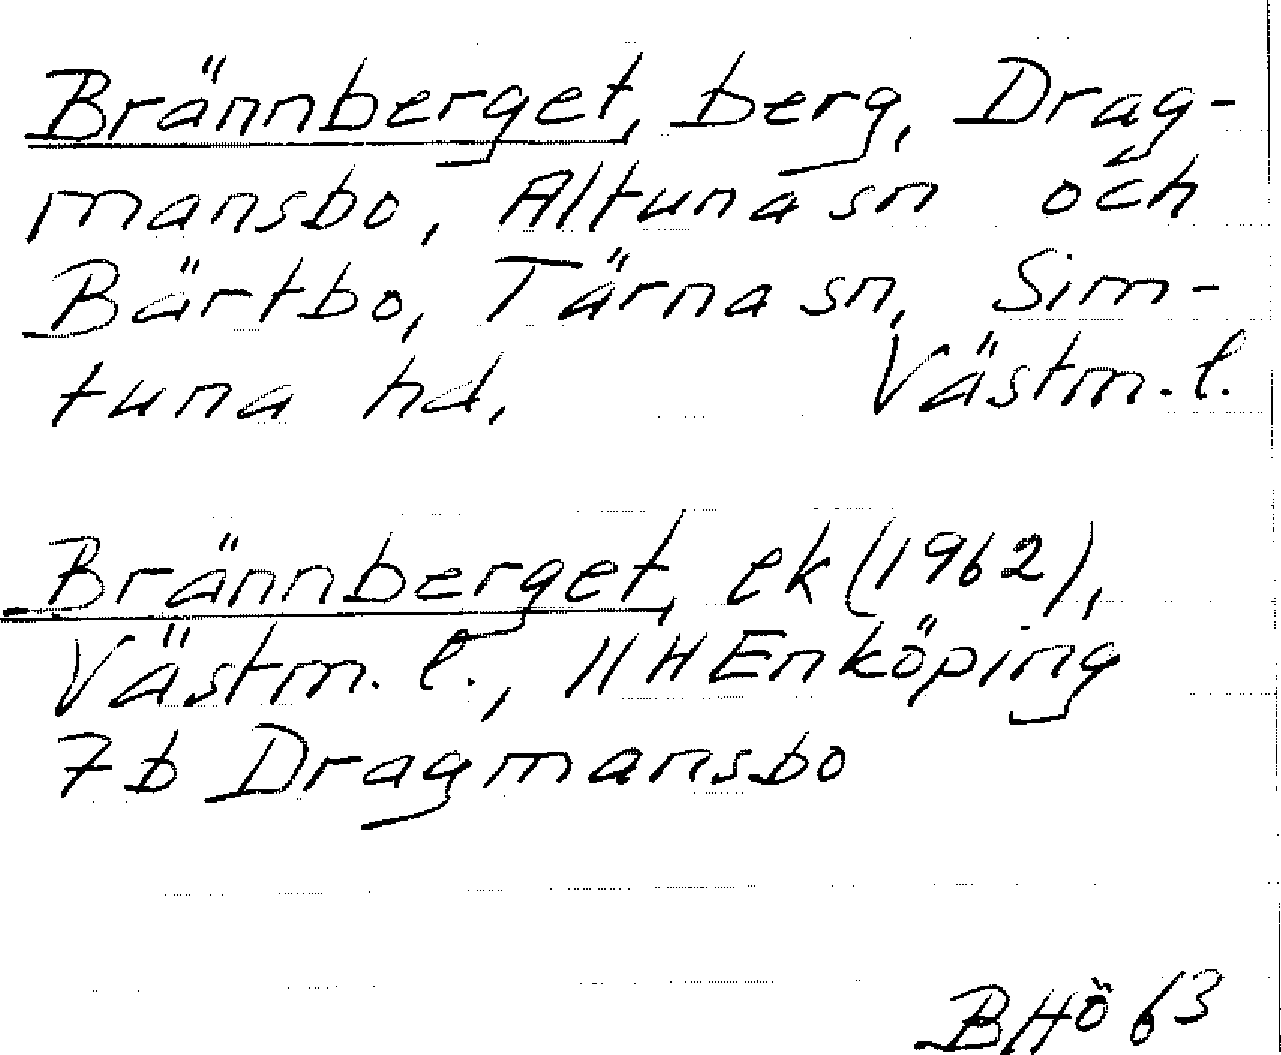 Brännberget, berg, Drag-
mansbo, Altuna sn och
Bärtbo, Tärna sn, Sim-
tuna hd, Västm. l.
Brännberget, ek (1962),
Västm. l., 11 H Enköping
7 b Dragmansbo
BHÖ 63